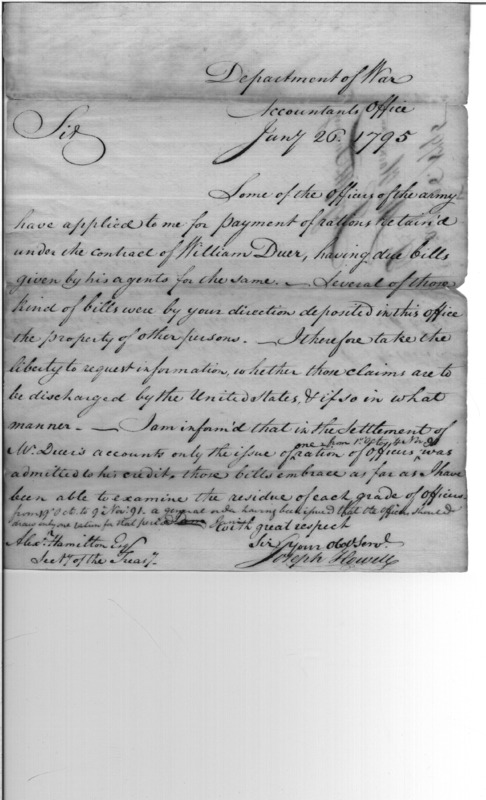 Department of War
Accountants Office
Jany 26. 1795
Sir
Some of the Officers of the army
have applied to me for payment of rations Retain'd
under the contract of William Duer, having due bills
given by his agents for the same. — Several of those
kind of bills were by your direction deposited in this office
the property of other persons. — I therefore take the
liberty to request information, whether those claims are to
be discharged by the United States, & if so in what
manner — I am inform'd that in the Settlement of
Mr. Duer's accounts only the issue of one ration of Officers was
admitted to his credit, those bills embrace as far as I have
been able to examine the residue of each grade of Officers
from 19th Oct. to 9th Nov. 91. a general order having been issued that the officers should
draw only one ration for that period
With great respect
Sir Your Obdt. Servt.
Joseph Howell
Alexr. Hamilton Esqr.
Secty. of the Treasy.